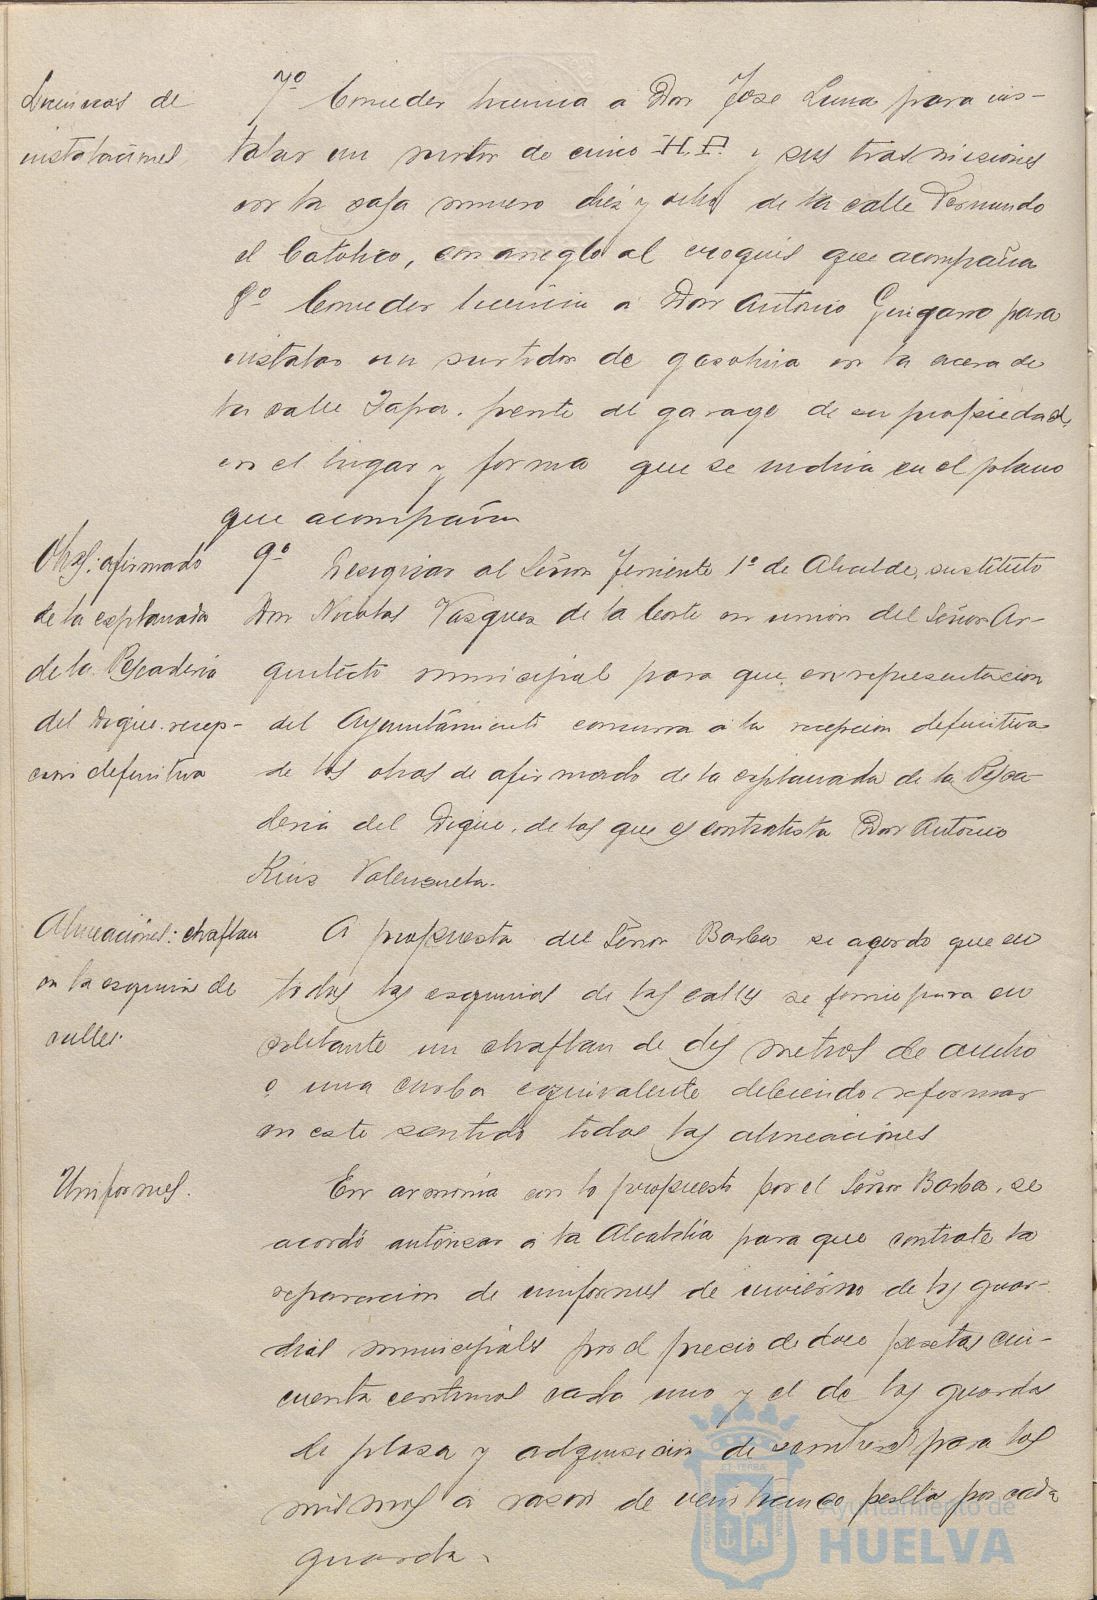 Licencias de
instalaciones
7º Conceder licencia a Don Jose Luna para ins-
talar un motor de cinco H.P. y sus trasmisiones
en la casa numero diez y ocho de la calle Fernando
el Catolico, con arreglo al croquis que acompaña
8º Conceder licencia a Don Antonio Guijarro para
instalar un surtidor de gasolina en la acera de
la calle Zafra, frente al garage de su propiedad,
en el lugar y forma que se indica en el plano
que acompaña
Obras: afirmado
de la explanada
de la Pescaderia
del Dique. recep-
cion definitiva
9º Designar al Señor Teniente 1º de Alcalde, sustituto
Don Nicolas Vasquez de la Corte en union del Señor Ar-
quitecto municipal para que en representacion
del Ayuntamiento concurra a la recepcion definitiva
de las obras de afirmado de la explanada de la Pesca-
deria del Dique, de las que es contratista Don Antonio
Ruiz Valenzuela.
Alineaciones: chaflan
en las esquinas de
calles.
A propuesta del Señor Barba se acordo que en
todas las esquinas de las calles se forme para en
adelante un chaflan de dos metros de ancho
o una curba equivalente debiendo reformar
en este sentido todas las alineaciones
Uniformes.
En armonia con lo propuesto por el Señor Barba, se
acordó autorizar a la Alcaldia para que contrate la
reparacion de uniformes de invierno de los guar-
dias municipales por el precio de doce pesetas cin-
cuenta centimos cada uno y el de los guardas
de plaza y adquisicion de para los
mismos a razon de pesetas por cada
guarda.
Ayuntamiento de
HUELVA